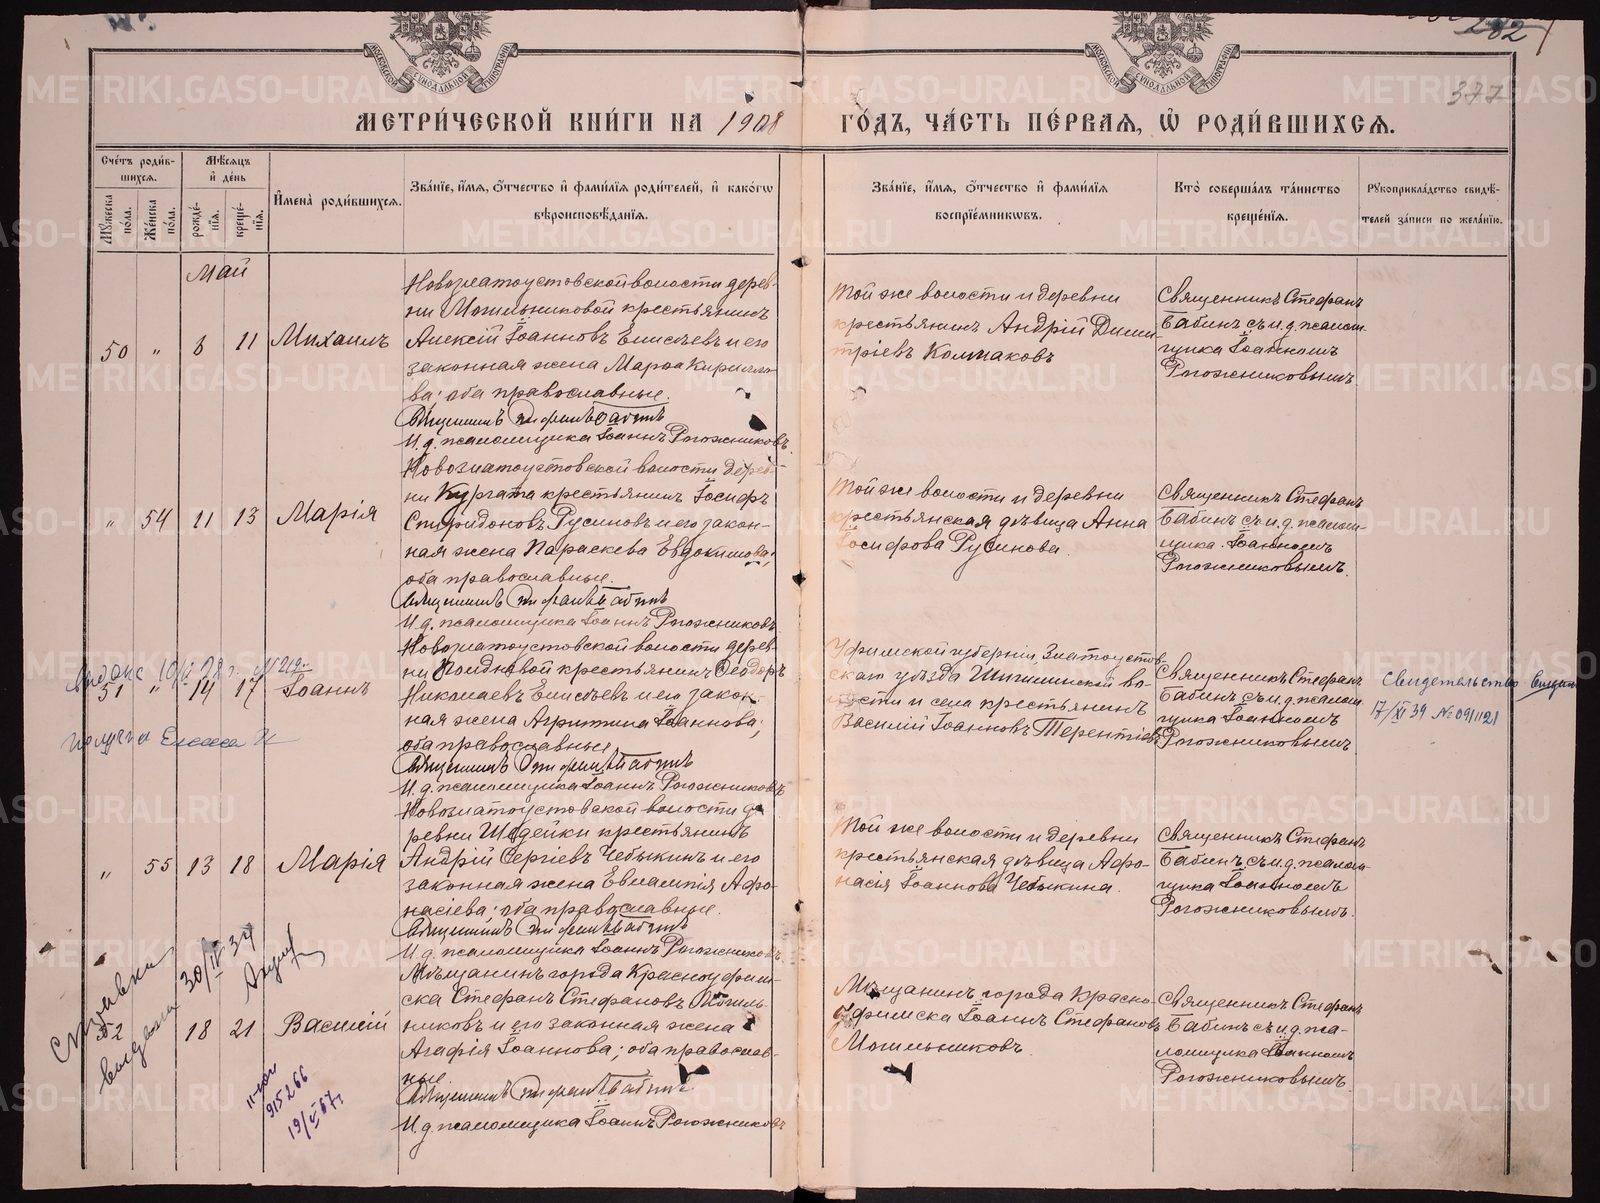 282
377
МЕТРИ́ЧЕСКОЙ КНИ́ГИ НА 1908 ГО́ДЪ, ЧА́СТЬ ПЕ́РВАЯ, Ѡ҆ РОДИ́ВШИХСЯ.
Сче́тъ роди́в-
шихся.
Мѣ́сяцъ
и҆ де́нь
Мꙋ́жеска по́ла.
Же́нска по́ла.
рожде́-
нїя.
креще́-
нїя.
И҆мена̀ роди́вшихся.
Зва́нїе, и҆́мя, ѻ҆́тчество и҆ фами́лїя роди́телей, и҆ како́гѡ
вѣроисповѣ́данїя.
Зва́нїе, и҆́мя, ѻ҆́тчество и҆ фами́лїя
воспрїе́мникѡвъ.
Кто̀ соверша́лъ та́инство
креще́нїя.
Рꙋкоприкла́дство свидѣ́-
телей за́писи по жела́нїю.
Май
50 " 8 11 Михаилъ
Новозлатоустовской волости дерев-
ни Могильниковой крестьянинъ
Алексій Іоанновъ Елисѣевъ и его
законная жена Марѳа Кирилло-
ва; оба православные.
Священникъ Стефанъ Бабинъ
И. д. псаломщика Іоаннъ Рогожниковъ
Той же волости и деревни
крестьянинъ Андрій Дими-
тріевъ Колмаковъ
Священникъ Стефанъ
Бабинъ съ и. д. псалом-
щика Іоанномъ
Рогожниковымъ.
" 54 11 13 Марія
Новозлатоустовской волости дерев-
ни Кургата крестьянинъ Іосифъ
Спиридоновъ Русиновъ и его закон-
ная жена Параскева Евдокимова;
оба православные.
Священникъ Стефанъ Бабинъ
И. д. псаломщика Іоаннъ Рогожниковъ
Той же волости и деревни
крестьянская дѣвица Анна
Іосифова Русинова.
Священникъ Стефанъ
Бабинъ съ и. д. псалом-
щика Іоанномъ
Рогожниковымъ.
51 " 14 17 Іоаннъ
Новозлатоустовской волости дерев-
ни крестьянинъ Ѳеодоръ
Николаевъ Елисѣевъ и его закон-
ная жена Агриппина Іоаннова;
оба православные
Священникъ Стефанъ Бабинъ
И. д. псаломщика Іоаннъ Рогожниковъ
Уфимской губерніи, Златоустов-
скаго уѣзда во-
лости и села крестьянинъ
Василій Іоанновъ Терентіевъ
Священникъ Стефанъ
Бабинъ съ и. д. псалом-
щика Іоанномъ
Рогожниковымъ
Свидетельство выдан
17/XI 39
" 55 13 18 Марія
Новозлатоустовской волости де-
ревни Шадейки крестьянинъ
Андрій Сергіевъ Чебыкинъ и его
законная жена Евлампія Афо-
насіева; оба православные.
Священникъ Стефанъ Бабинъ
И. д. псаломщика Іоаннъ Рогожниковъ
Той же волости и деревни
крестьянская дѣвица Афо-
насія Іоаннова Чебыкина.
Священникъ Стефанъ
Бабинъ, съ и. д. псалом-
щика Іоанномъ
Рогожниковымъ.
Справка
выдана 30/IV 34
52 " 18 21 Василій
Мѣщанинъ города Красноуфим-
ска Стефанъ Стефановъ Могиль-
никовъ и его законная жена
Агафія Іоаннова; оба православ-
ные.
Священникъ Стефанъ Бабинъ
И. д. псаломщика Іоаннъ Рогожниковъ
Мѣщанинъ города Красно-
уфимска Іоаннъ Стефановъ
Могильниковъ.
Священникъ Стефанъ
Бабинъ съ и. д. пса-
ломщика Іоанномъ
Рогожниковымъ
915266
19/V 67г.
METRIKI.GASO-URAL.RU